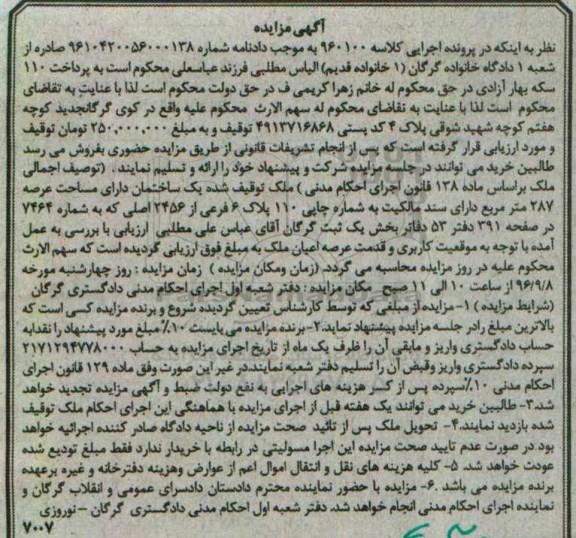 آگهی مزایده
نظر به اینکه در پرونده اجرایی کلاسه ۹۶۰۱۰۰ به موجب دادنامه شماره ۹۶۱۰۴۲۰۰۵۶۰۰۰۱۳۸ صادره از
شعبه ۱ دادگاه خانواده گرگان (۱ خانواده قدیم) الیاس مطلبی فرزند عباسعلی محکوم است به پرداخت ۱۱۰
سکه بهار آزادی در حق محکوم له خانم زهرا کریمی ف در حق دولت محکوم است لذا با عنایت به تقاضای
محکوم است لذا با عنایت به تقاضای محکوم له سهم الارث محکوم علیه واقع در کوی گرگانجدید کوچه
هفتم کوچه شهید شوقی پلاک ۴ کد پستی ۴۹۱۳۷۱۶۸۶۸ توقیف و به مبلغ ۲۵۰,۰۰۰,۰۰۰ تومان توقیف
و مورد ارزیابی قرار گرفته است که پس از انجام تشریفات قانونی از طریق مزایده حضوری بفروش می رسد
طالبین خرید می توانند در جلسه مزایده شرکت و پیشنهاد خود را ارائه و تسلیم نمایند . (توصیف اجمالی
ملک براساس ماده ۱۳۸ قانون اجرای احکام مدنی ) ملک توقیف شده یک ساختمان دارای مساحت عرصه
۲۸۷ متر مربع دارای سند مالکیت به شماره چاپی ۱۱۰ پلاک ۶ فرعی از ۲۴۵۶ اصلی که به شماره ۷۴۶۴
در صفحه ۳۹۱ دفتر ۵۳ دفاتر بخش یک ثبت گرگان آقای عباس علی مطلبی ارزیابی با بررسی به عمل
آمده با توجه به موقعیت کاربری و قدمت عرصه اعیان ملک به مبلغ فوق ارزیابی گردیده است که سهم الارث
محکوم علیه در روز مزایده محاسبه می گردد. (زمان ومکان مزایده ) زمان مزایده : روز چهارشنبه مورخه
۹۶/۹/۸ از ساعت ۱۰ الی ۱۱ صبح مکان مزایده : دفتر شعبه اول اجرای احکام مدنی دادگستری گرگان
(شرایط مزایده ) ۱-مزایده از مبلغی که توسط کارشناس تعیین گردیده شروع و برنده مزایده کسی است که
بالاترین مبلغ رادر جلسه مزایده پیشنهاد نماید.۲-برنده مزایده می بایست ۱۰٪ مبلغ مورد پیشنهاد را نقدا به
حساب دادگستری واریز و مابقی آن را ظرف یک ماه از تاریخ اجرای مزایده به حساب ۲۱۷۱۲۹۴۷۷۸۰۰۰
سپرده دادگستری واریز وقبض آن را تسلیم دفتر شعبه نمایند.در غیر این صورت وفق ماده ۱۲۹ قانون اجرای
احکام مدنی ۱۰٪سپرده پس از کسر هزینه های اجرایی به نفع دولت ضبط و آگهی مزایده تجدید خواهد
شد.۳- طالبین خرید می توانند یک هفته قبل از اجرای مزایده با هماهنگی این اجرای احکام ملک توقیف
شده بازدید نمایند.۴- تحویل ملک پس از تائید صحت مزایده از ناحیه دادگاه صادر کننده اجرائیه خواهد
بود.در صورت عدم تایید صحت مزایده این اجرا مسولیتی در رابطه با خریدار ندارد فقط مبلغ تودیع شده
عودت خواهد شد. ۵- کلیه هزینه های نقل و انتقال اموال اعم از عوارض وهزینه دفترخانه و غیره برعهده
برنده مزایده می باشد .۶- مزایده با حضور نماینده محترم دادستان دادسرای عمومی و انقلاب گرگان و
نماینده اجرای احکام مدنی انجام خواهد شد. دفتر شعبه اول احکام مدنی دادگستری گرگان -نوروزی
۷۰۰۷